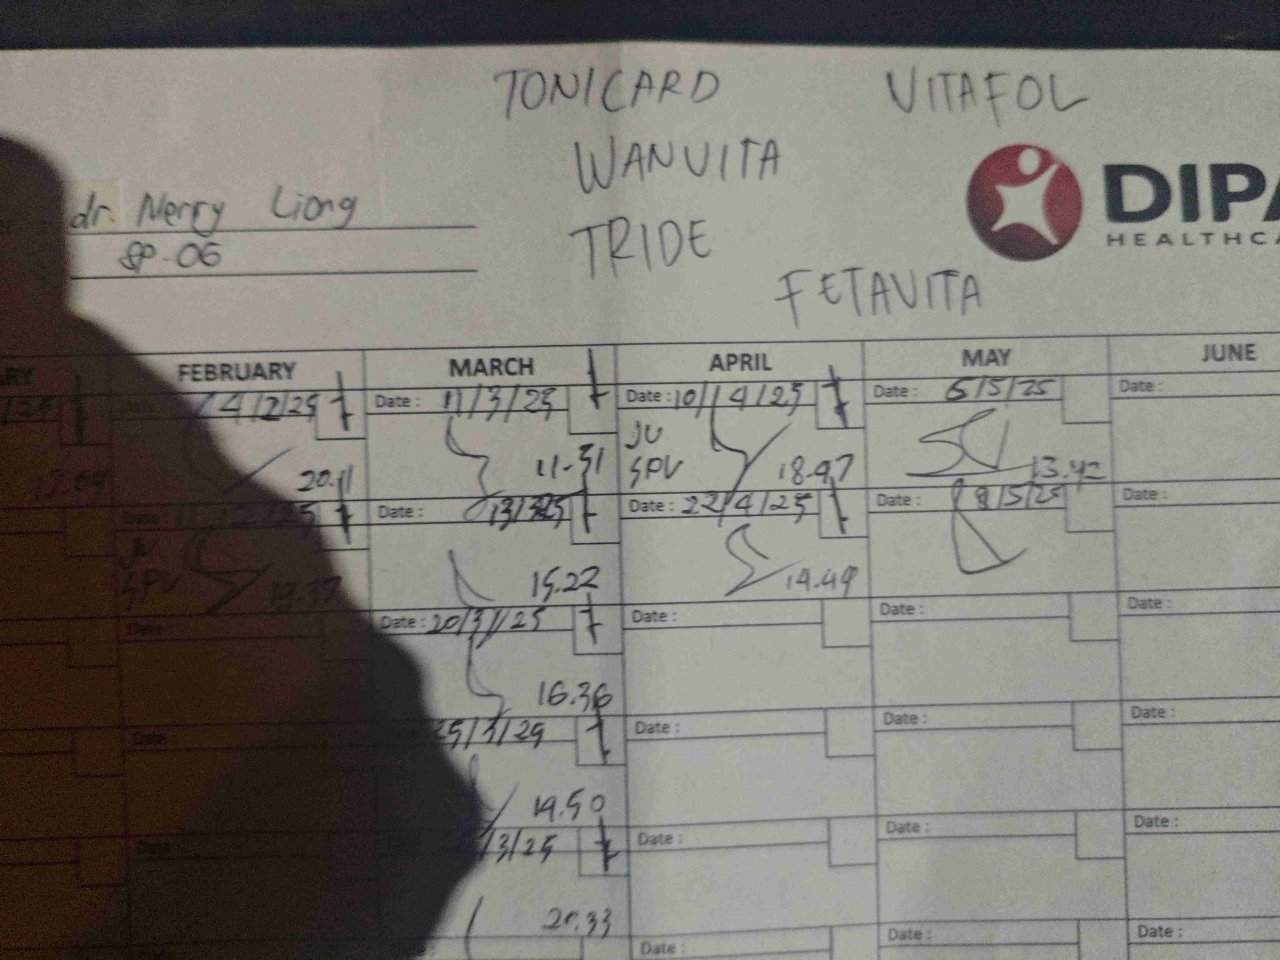 TONICARD VITAFOL
WANVITA
dr. Merry Liong
SP.OG
TRIDE
DIPA
HEALTHCA
FETAVITA
FEBRUARY MARCH APRIL MAY JUNE
Date : 11/3/25 Date : 10/4/25 5/5/25 Date :
4/2/25
JU
20.11 11.51 SPV 18.47 13.42
Date : 13/3/25 Date : 22/4/25 8/5/25 Date :
JU
SPV 19.37 15.22 14.49
Date : Date : 20/3/25 Date : Date : Date :
16.36
Date 25/3/25 Date : Date : Date :
19.50
Date /3/25 Date : Date : Date :
20.33
Date : Date : Date :